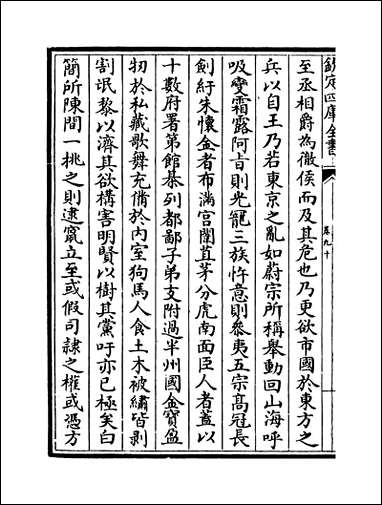 欽定四庫全書
卷九十
至丞相爵為徹侯而及其危也乃更欲市國於東方之
兵以自王乃若東京之亂如蔚宗所稱舉動回山海呼
吸變霜露阿旨則光寵三族忤意則參夷五宗高冠長
劍紆朱懷金者布滿宫闈苴茅分虎南面臣人者蓋以
十數府署第館棊列都鄙子弟支附過半州國金寶盈
牣於私藏歌舞充備於内室狗馬人食土木被繡皆剥
割氓黎以濟其欲構害明賢以樹其黨吁亦已極矣白
簡所陳間一挑之則逮竄立至或假司隸之權或憑方